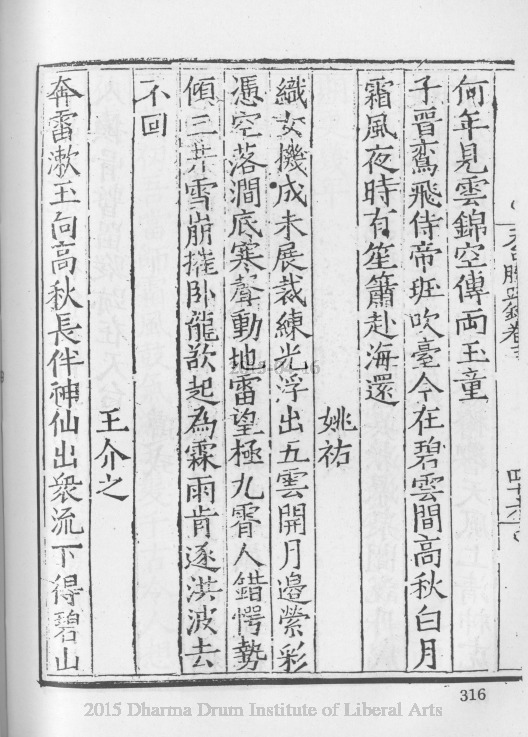 何年見雲錦空傳兩玉童
子晋鸞飛侍帝班吹臺今在碧雲間高秋白月
霜風夜時有笙簫赴海還
姚祐
織女機成未展裁練光浮出五雲開月邊縈彩
憑空落澗底寒聲動地雷望極九霄人錯愕勢
傾三英雪崩摧卧龍欲起為霖雨肯逐洪波去
不回
王介之
奔雷漱玉向高秋長伴神仙出衆流下得碧山
316
2015 Dharma Drum Institute of Liberal Arts